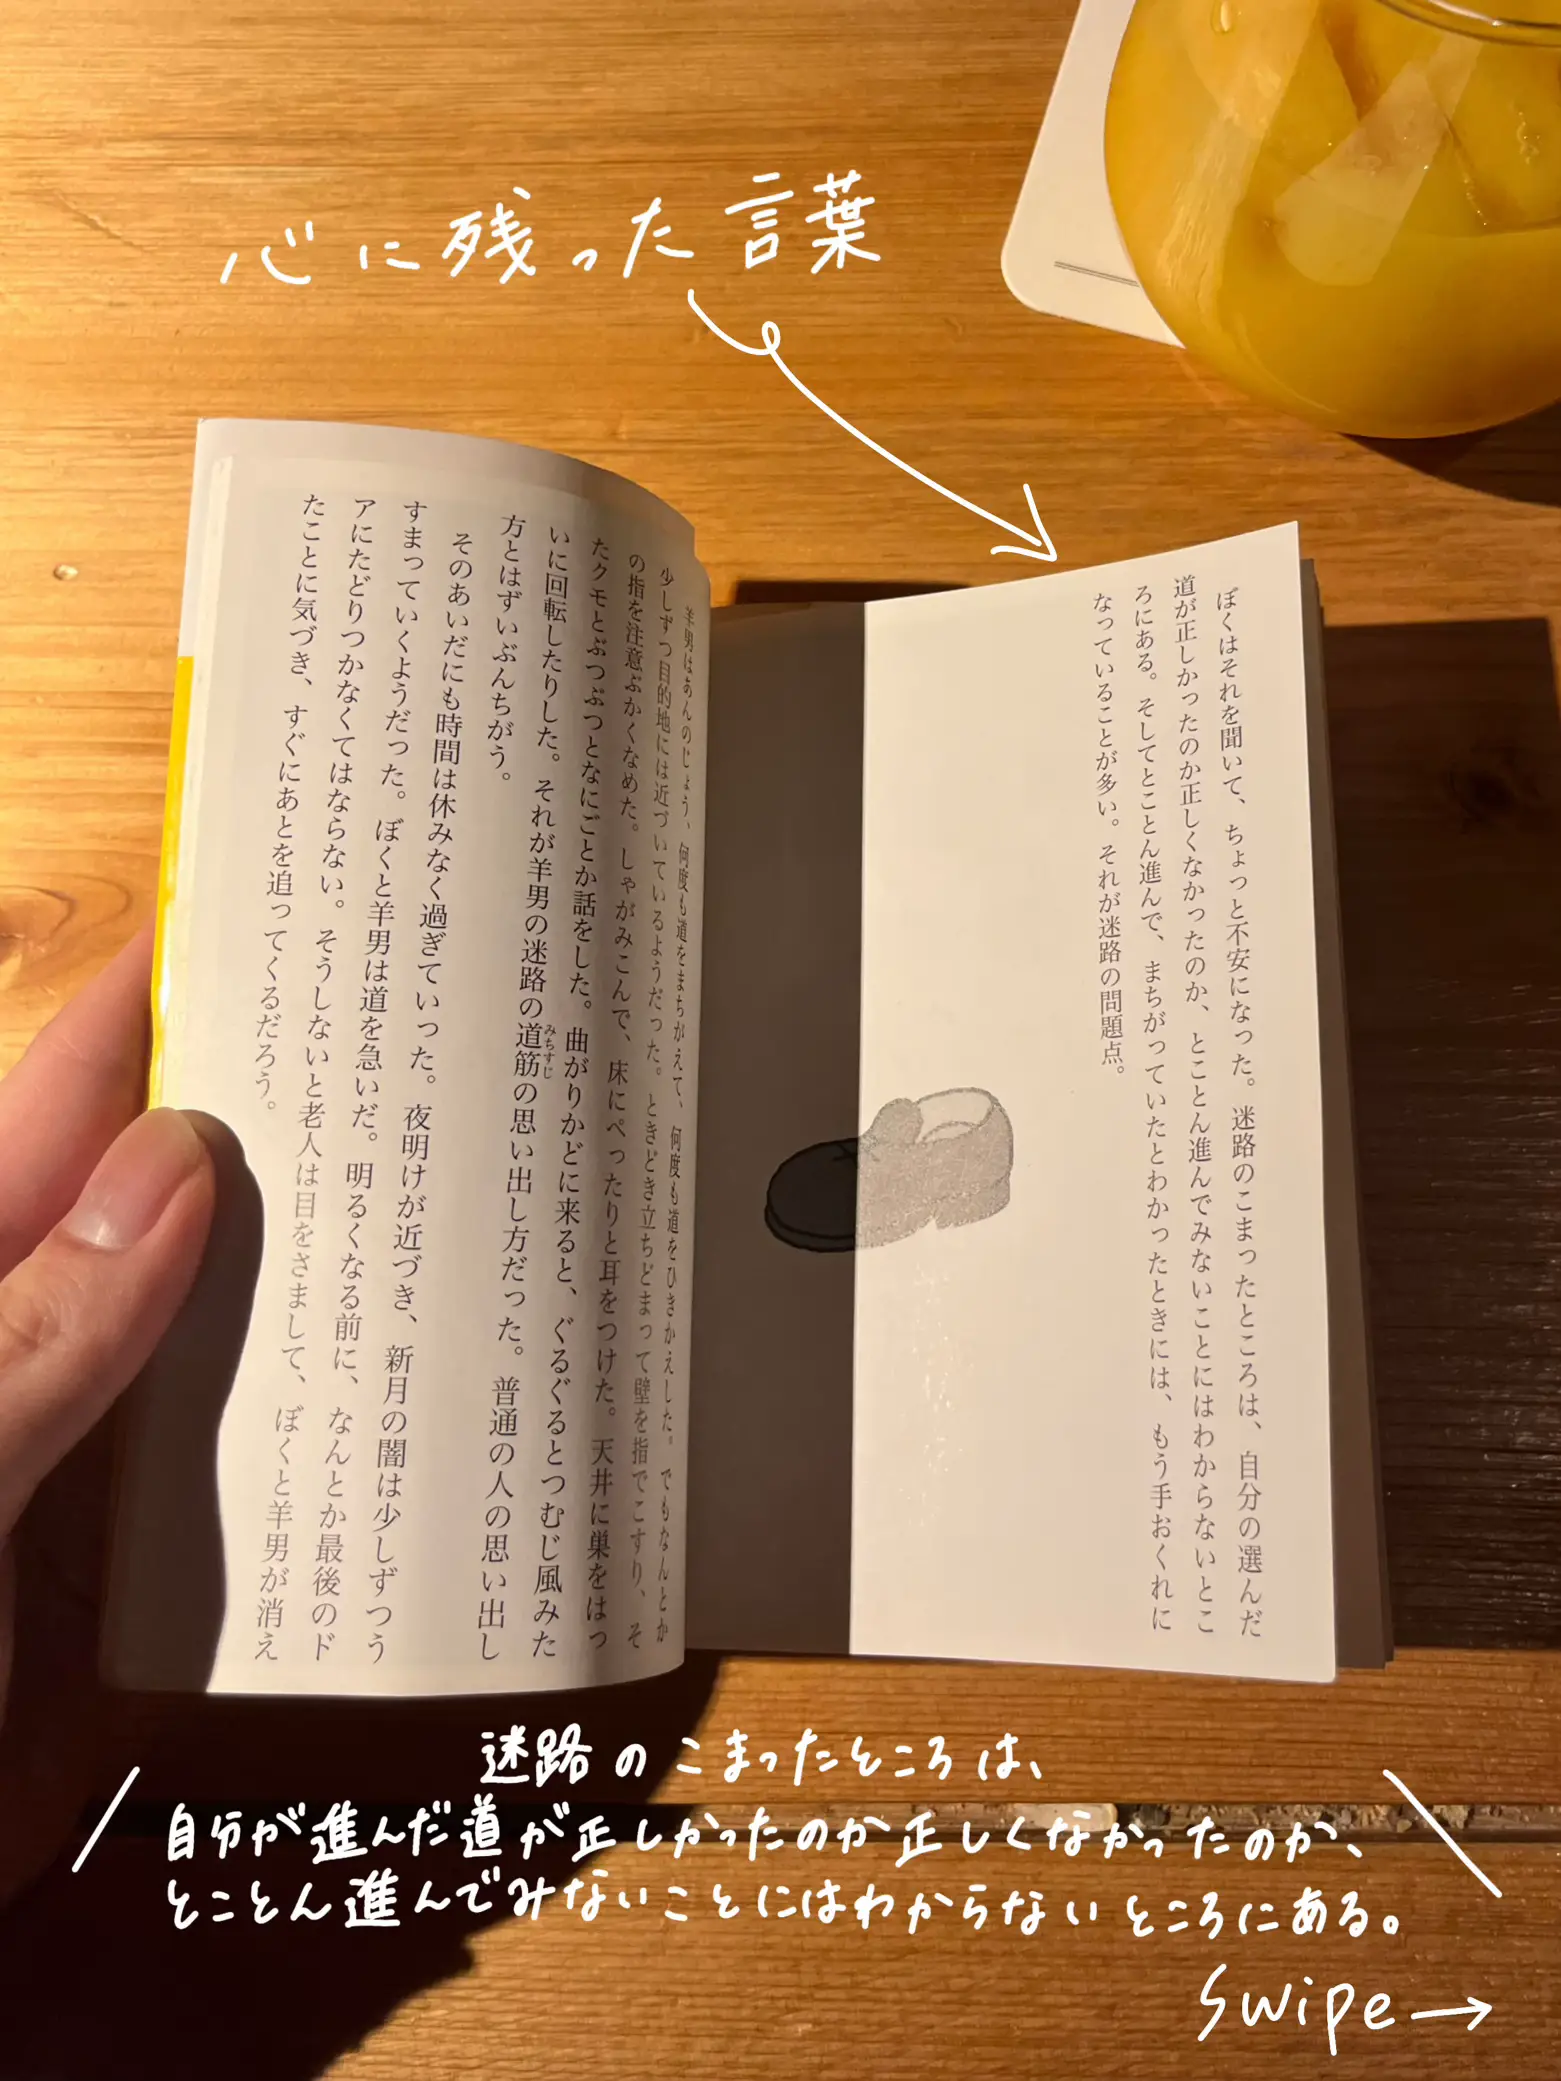 心に残った言葉
ぼくはそれを聞いて、ちょっと不安になった。迷路のこまったところは、自分の選んだ
道が正しかったのか正しくなかったのか、とことん進んでみないことにはわからないとこ
ろにある。そしてとことん進んで、まちがっていたとわかったときには、もう手おくれに
なっていることが多い。それが迷路の問題点。
羊男はあんのじょう、何度も道をまちがえて、何度も道をひきかえした。でもなんとか
少しずつ目的地には近づいているようだった。ときどき立ちどまって壁を指でこすり、そ
の指を注意ぶかくなめた。しゃがみこんで、床にぺったりと耳をつけた。天井に巣をはっ
たクモとぶつぶつとなにごとか話をした。曲がりかどに来ると、ぐるぐるとつむじ風みた
いに回転したりした。それが羊男の迷路の道筋の思い出し方だった。普通の人の思い出し
みちすじ
方とはずいぶんちがう。
そのあいだにも時間は休みなく過ぎていった。夜明けが近づき、新月の闇は少しずつう
すまっていくようだった。ぼくと羊男は道を急いだ。明るくなる前に、なんとか最後のド
アにたどりつかなくてはならない。そうしないと老人は目をさまして、ぼくと羊男が消え
たことに気づき、すぐにあとを追ってくるだろう。
迷路のこまったところは、
自分が進んだ道が正しかったのか正しくなかったのか、
とことん進んでみないことにはわからないところにある。
swipe